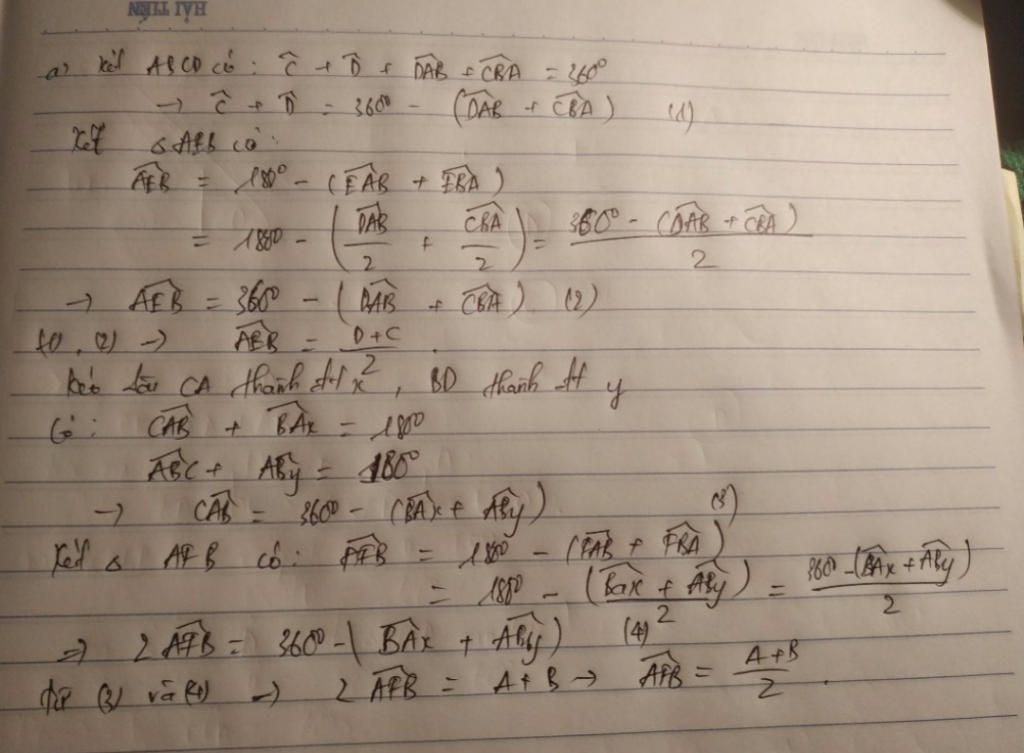 HẢI TIẾN
a) Xét ABCD có: Ĉ + D̂ + DAB̂ + CBÂ = 360°
→ Ĉ + D̂ = 360° - (DAB̂ + CBÂ) (1)
Xét △AEB có:
AEB̂ = 180° - (EAB̂ + EBÂ)
= 180° - (DAB̂/2 + CBÂ/2) = (360° - (DAB̂ + CBÂ))/2
→ AEB̂ = 360° - (DAB̂ + CBÂ) (2)
(1), (2) → AEB̂ = (D+C)/2.
Kéo dài CA thành tt x, BD thành tt y
Có: CAB̂ + BAx̂ = 180°
ABĈ + ABŷ = 180°
→ CAB̂ = 360° - (BAx̂ + ABŷ) (3)
Xét △ AFB có: AFB̂ = 180° - (FAB̂ + FBÂ)
= 180° - (BAx̂ + ABŷ)/2 = (360° - (BAx̂ + ABŷ))/2
⇒ 2 AFB̂ = 360° - (BAx̂ + ABŷ) (4)
Từ (3) và (4) → 2 AFB̂ = A + B → AFB̂ = (A+B)/2.